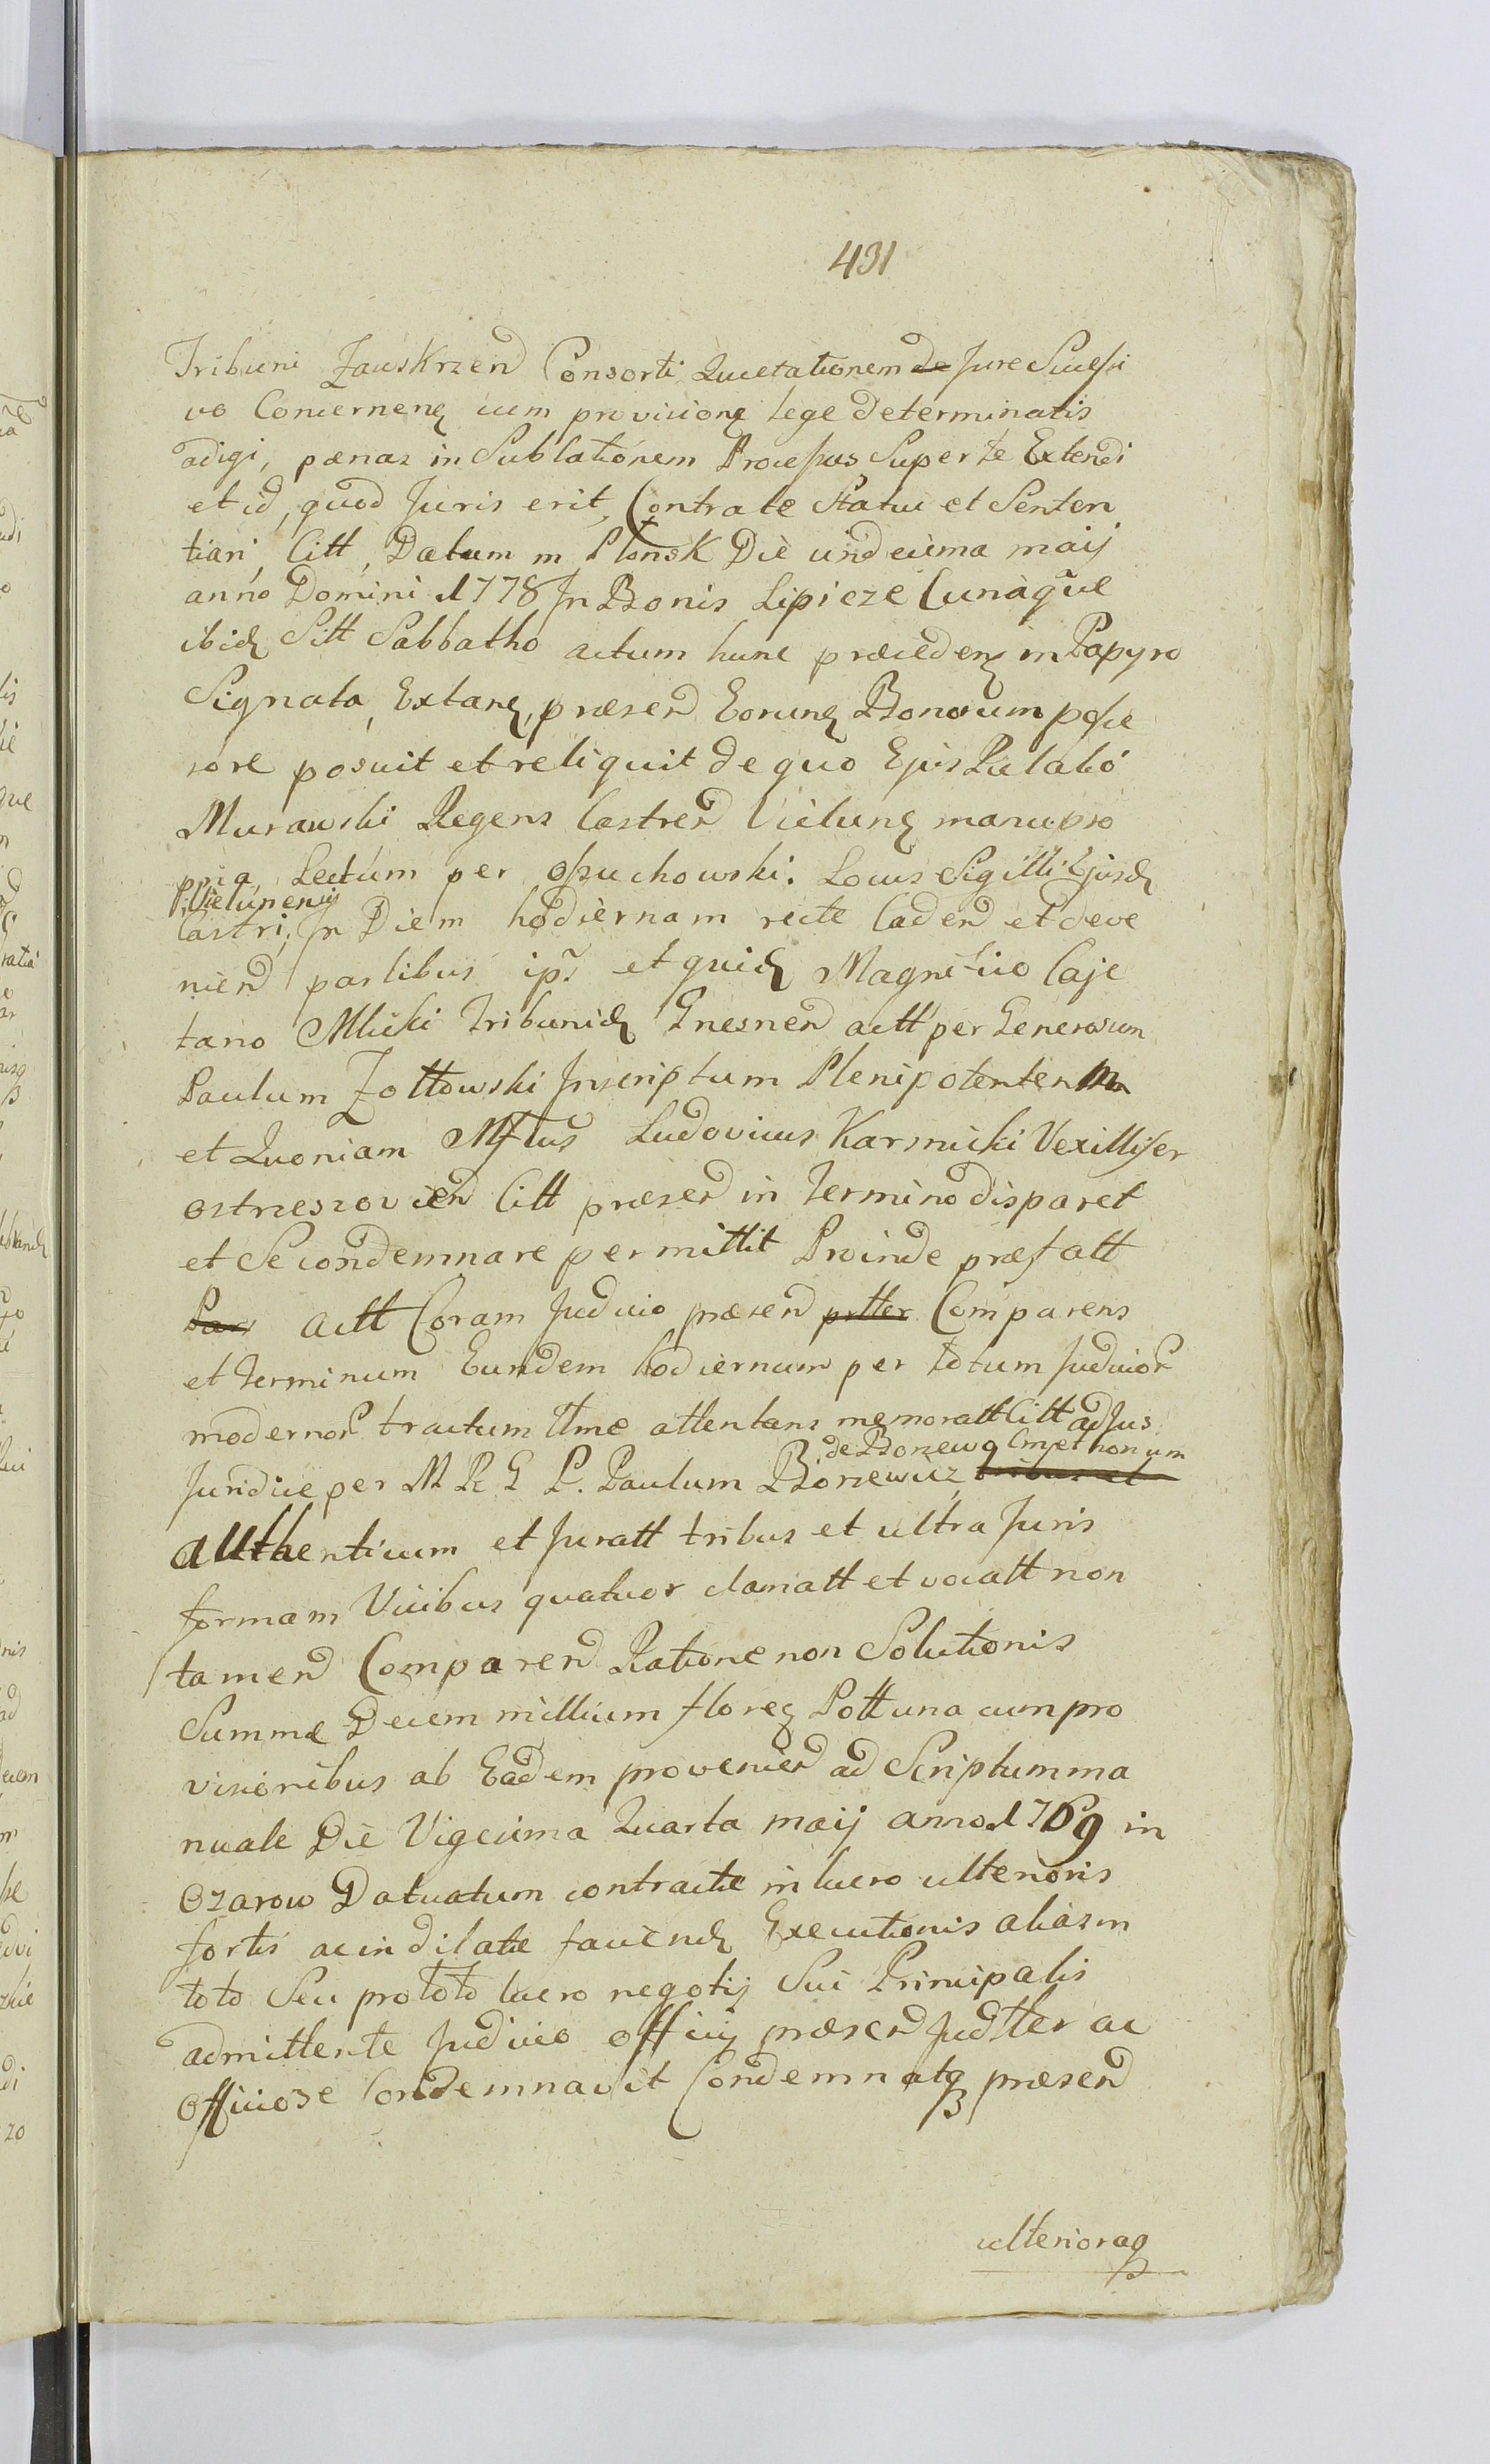 431
Tribuni Zawskrzen Consorti Quietationem de Jure Successi
vo Concernenq cum provisione lege determinatis
adigi, pænas in Sublationem Processus Super te Extendi
et id, quod Juris erit, Contra te Statui et Senten
tiari, Citt, Datum in Płonsk Die undecima maij
anno Domini 1778 In Bonis Lipicze Cunáque
ibidq Sitt Sabbatho actum hunc præcedenq in Papyro
Signata, Extanq, præsen Eorunq Bonorum posse
sore posuit et reliquit de quo Ejus Relatió
Murawski Regens Castren Vielunq manu pro
pria Lectum per Ossuchowski. Locus Sigilli Ejusdq
Vielunensis
Castri, In Diem hodiernam recte Caden et deve
nien partibus ips et quidq Magnifico Caje
tano Mlicki Tribunidq Gnesnen actt per Generosum
Paulum Zołtowski Inscriptum Plenipotentem
et Quoniam Mftus Ludovicus Karsnicki Vexillifer
Ostrzeszovien Citt præsen in Termino disparet
et Se condemnare permittit Proinde præfatt
Pars Actt Coram Judicio præsen prtter Comparens
et Terminum Eundem hodiernum per totum Judicior
modernor tractum ttmæ attentans memoratt Citt ad Jus
de Borzewo Cmethonum
Juridice per M R G P. Paulum Borzewicz tribus et
authenticum et Juratt tribus et ultra Juris
formam Vicibus quatuor clamatt et vocatt non
tamen Comparen Ratione non Solutionis
Summæ Decem millium florenq Pott una cum pro
visionibus ab Eadem provenien ad Scriptum ma
nuale Die Vigesima Quarta maij anno 1769 in
Ozarow Datuatum contractæ in lucro ulterioris
fortis ac indilatæ faciendq Executionis alias in
toto Seu pro toto lucro negotij Sui Principalis
admittente Judicio officij præsen Judtter ac
officiose Condemnavit Condemnatq præsen
ulterioraq